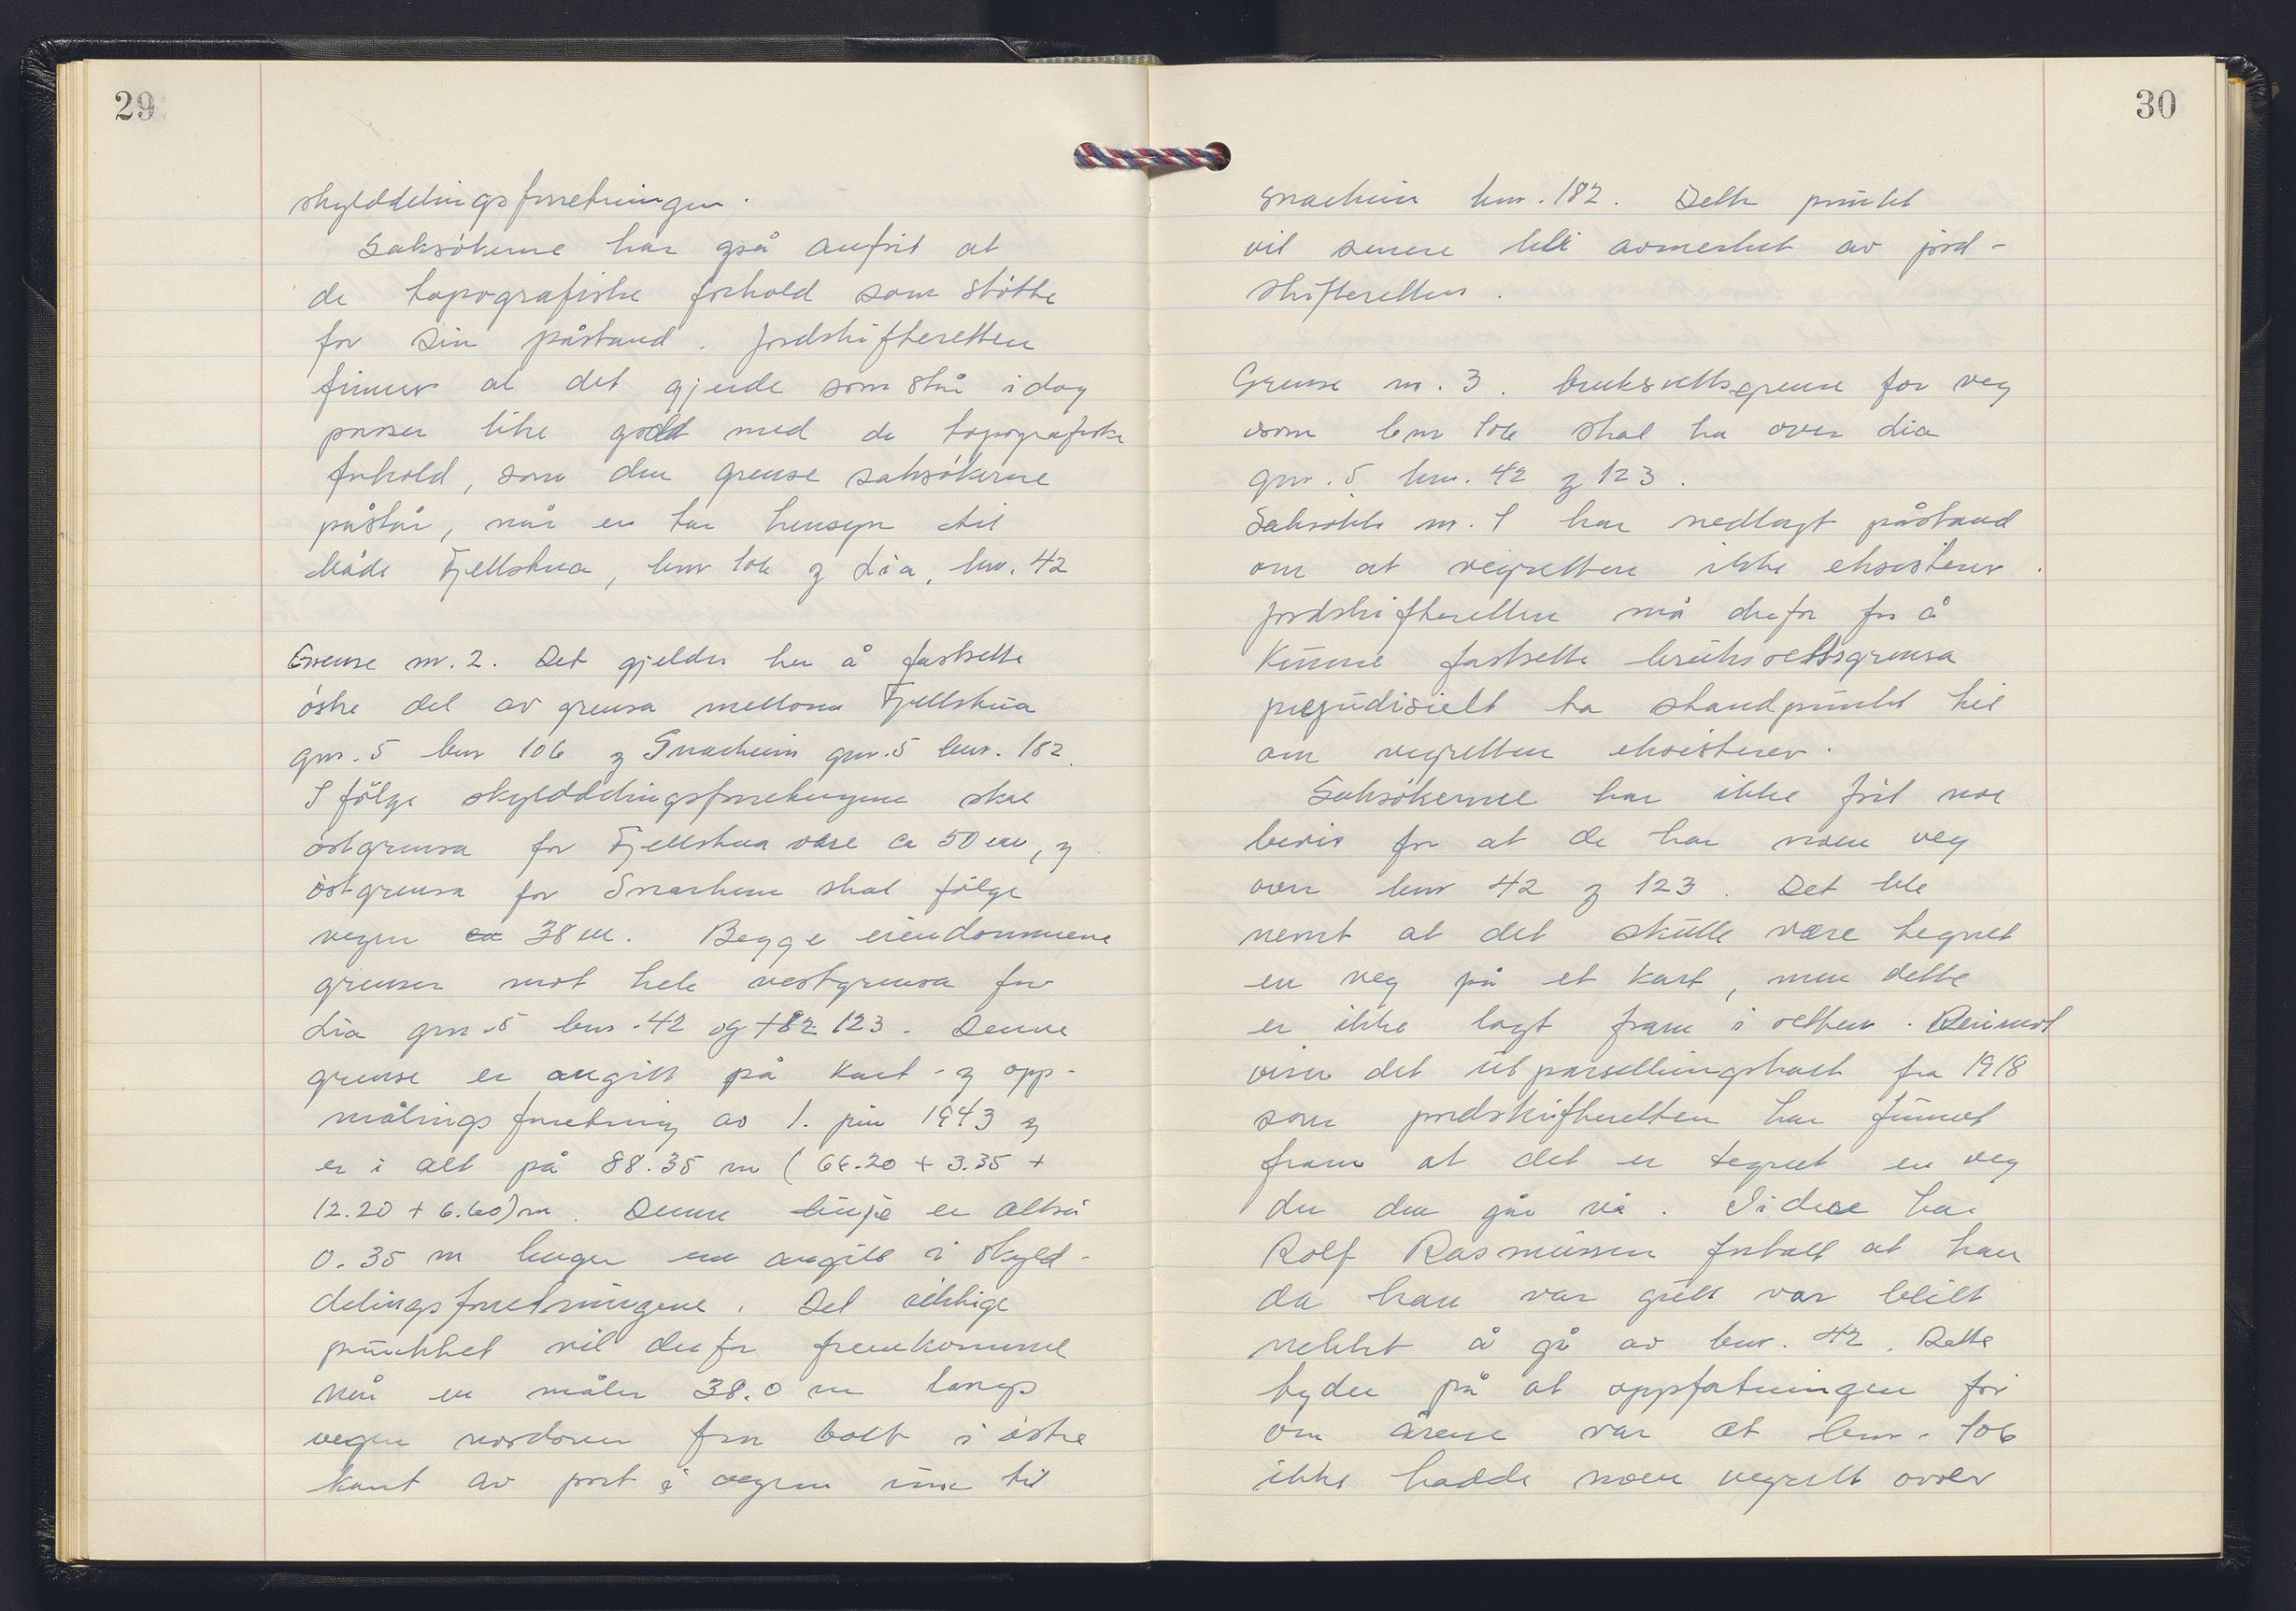 29
skylddelingsforretningen.
Saksökerne har også anfört at
de topografiske forhold som stötte
for sin påstand. Jordskifteretten
finner at det gjerde som står idag
passer like godt med de topografiske
forhold, som den grense saksökerne
påstår, når en tar hensyn til
både Fjellskua, bnr 106 og Lia, bnr. 42
Grense nr. 2. Det gjelder her å fastsette
östre del av grensa mellom Fjellskua
gnr. 5 bnr 106 og Snarheim gnr. 5 bnr. 182.
I fölge skylddelingsforretningene skal
östgrensa for Fjellskua være ca 50 m, og
östgrensa for Snarheim skal fölge
vegen ca 38 m. Begge eiendommene
grenser mot hele vestgrensa for
Lia gnr. 5 bnr. 42 og 182 123. Denne
grense er angitt på kart- og opp-
målingsforretning av 1. juni 1943 og
er i alt på 88.35 m (66.20 + 3.35 +
12.20 + 6.60) m. Denne linje er altså
0.35 m lenger enn angitt i skyld-
delingsforretningene. Det riktige
punktet vil derfor fremkomme
når en måler 38.0 m langs
vegen nordover fra bolt i östre
kant av port i vegen inn til
30
Snarheim bnr. 182. Dette punkt
vil senere bli avmerket av jord-
skifteretten.
Grense nr. 3. bruksrettsgrense for veg
som bnr 106 skal ha over Lia
gnr. 5 bnr. 42 og 123.
Saksökte nr. 1 har nedlagt påstand
om at vegretten ikke eksisterer.
Jordskifteretten må derfor for å
kunne fastsette bruksrettsgrensa
prejudisielt ta standpunkt til
om vegretten eksisterer.
Saksökerne har ikke fört noe
bevis for at de har noen veg
over bnr 42 og 123. Det ble
nevnt at det skulle være tegnet
en veg på et kart, men dette
er ikke lagt fram i retten. Derimot
viser det utparselleringskart fra 1918
som jordskifteretten har funnet
fram at det er tegnet en veg
der den går nå. Videre har
Rolf Rasmussen fortalt at han
da han var gutt var blitt
nektet å gå av bnr. 42. Dette
tyder på at oppfatningen för
om årene var at bnr. 106
ikke hadde noen vegrett over